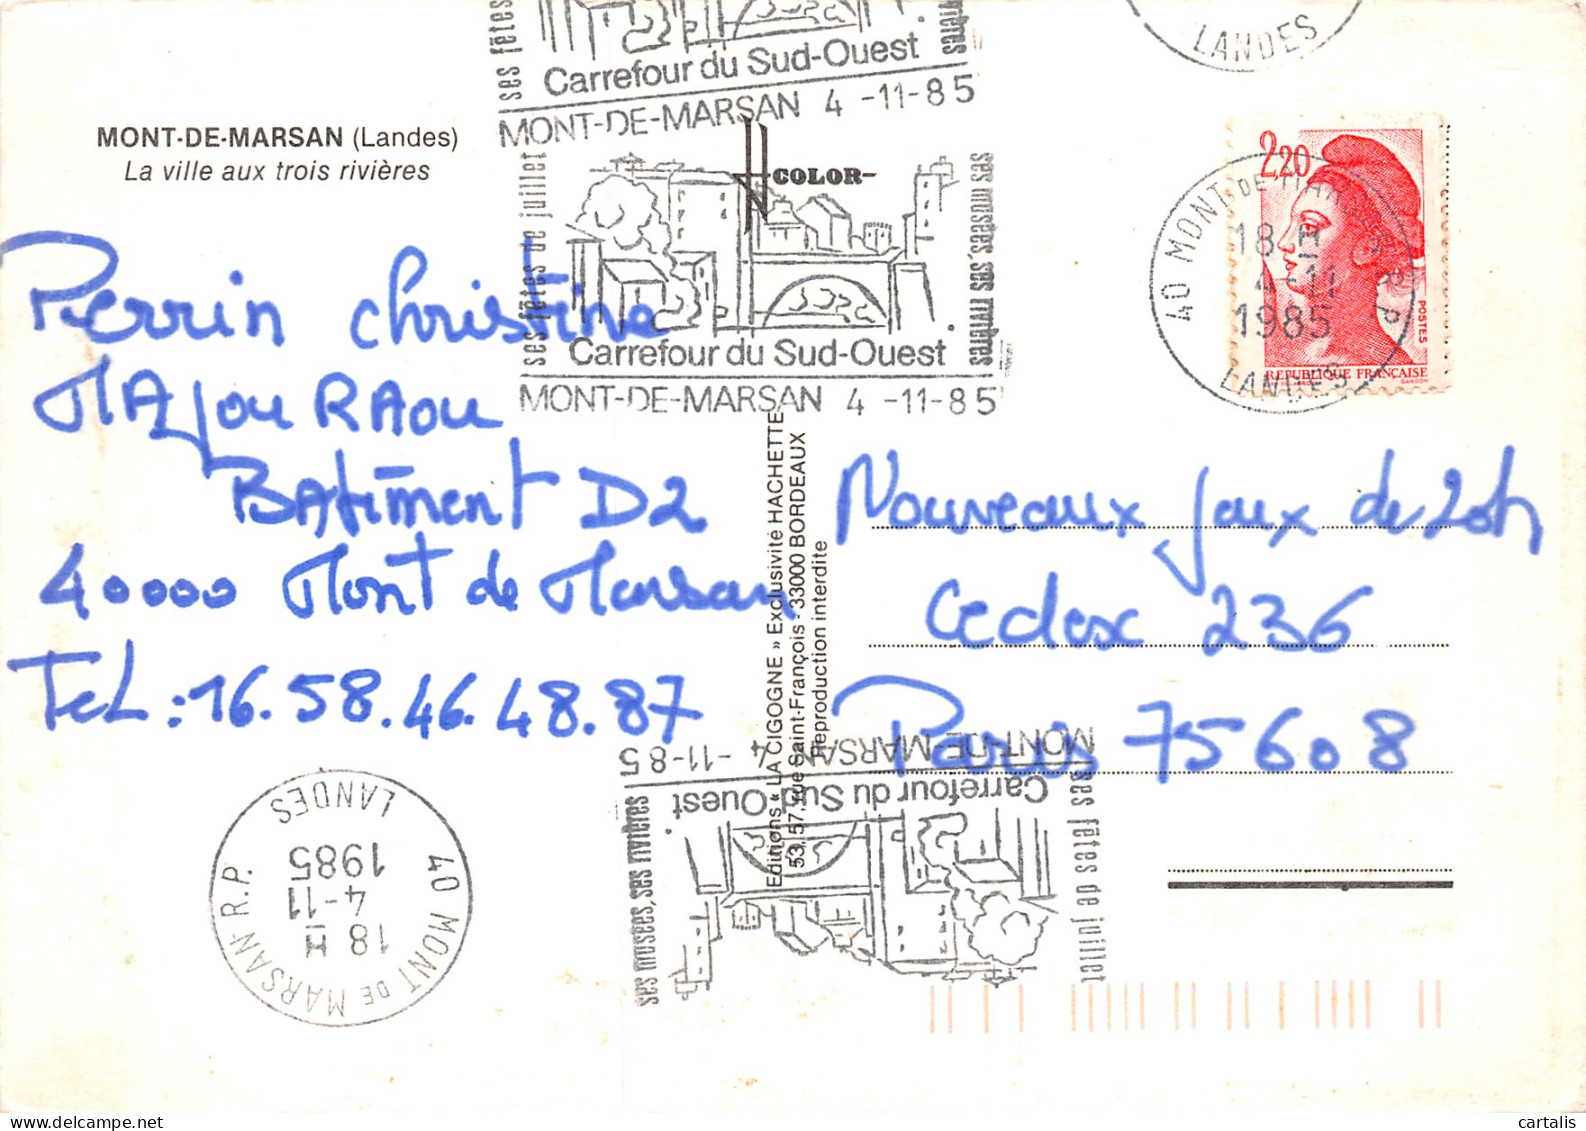 ses fêtes
Carrefour du Sud-Ouest
rivières
MONT-DE-MARSAN 4 -11-85
LANDES
MONT-DE-MARSAN (Landes)
La ville aux trois rivières
COLOR
ses fêtes de juillet
ses musées, ses rivières
Carrefour du Sud-Ouest
MONT-DE-MARSAN 4 -11-85
2,20
POSTES
REPUBLIQUE FRANÇAISE
GANDON
40 MONT-DE-MARSAN R.P.
18 H
4-11
1985
LANDES
Perrin Christine
MAjou RAou
BAtiment D2
40000 Mont de Marsan
TeL : 16.58.46.48.87
Editions « LA CIGOGNE » Exclusivité HACHETTE
53, 57, rue Saint-François - 33000 BORDEAUX
Reproduction interdite
Nouveaux jeux de 20h
Cedex 236
Paris 75608
MONT-DE-MARSAN 4 -11-85
Carrefour du Sud-Ouest
ses fêtes de juillet
ses musées, ses rivières
40 MONT DE MARSAN-R.P.
18 H
4-11
1985
LANDES
cartalis
delcampe.net